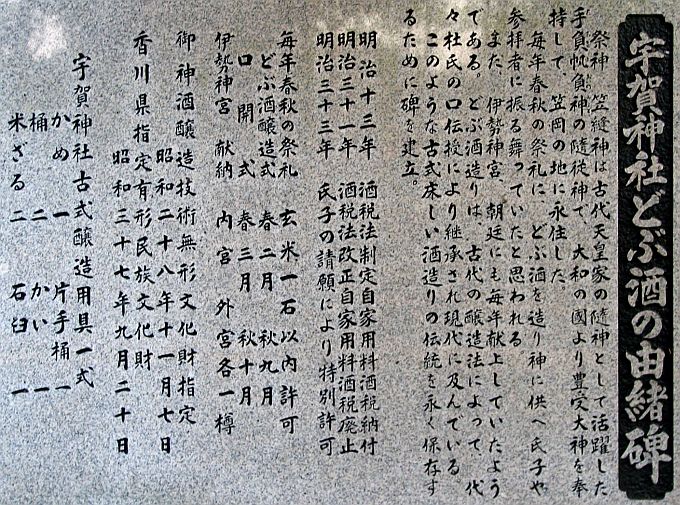 宇賀神社どぶ酒の由緒碑
祭神　笠縫神は古代天皇家の随神として活躍した
手負帆負神の随従神で、大和の國より豊受大神を奉
持して、笠岡の地に永住した。
毎年春秋の祭礼に、どぶ酒を造り神に供へ氏子や
参拝者に振る舞っていたと思われる
また、伊勢神宮、朝廷にも毎年献上していたよう
である。どぶ酒造りは、古代の醸造法によって、代
々杜氏の口伝授により継承され現代に及んでいる
このような古式床しい酒造りの伝統を永く保存す
るために碑を建立。
明治十三年　酒税法制定自家用料酒税納付
明治三十一年　酒税法改正自家用料酒税廃止
明治三十三年　氏子の請願により特別許可
毎年春秋の祭礼　玄米一石以内許可
どぶ酒醸造式　春二月　秋九月
口開式　春三月　秋十月
伊勢神宮　献納　内宮　外宮各一樽
御神酒醸造技術無形文化財指定
昭和二十八年十一月七日
香川県指定有形民族文化財
昭和三十七年九月二十日
宇賀神社古式醸造用具一式
かめ　一　片手桶　一
桶　二　かい　一
米ざる　二　石臼　一